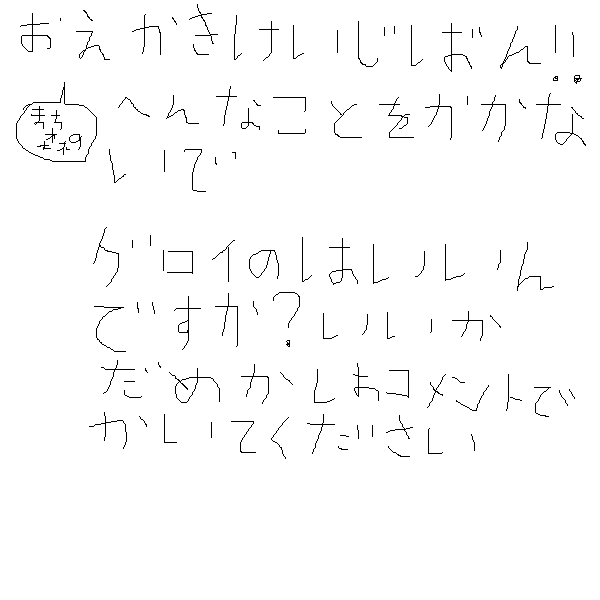 おえかきけいじばん!!
へんなことをかかな
いで
グロイのはいいん
ですか?いいか
だめかはコメントで
かいてください